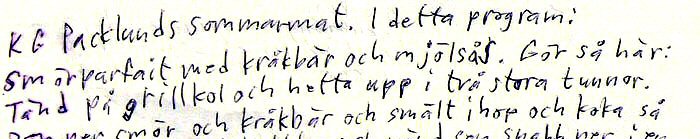 KG Packlunds sommarmat. I detta program:
Smörparfait med kråkbär och mjölsås. Gör så här:
Tänd på grillkol och hetta upp i två stora tunnor.
smör och kråkbär och smält ihop och koka så